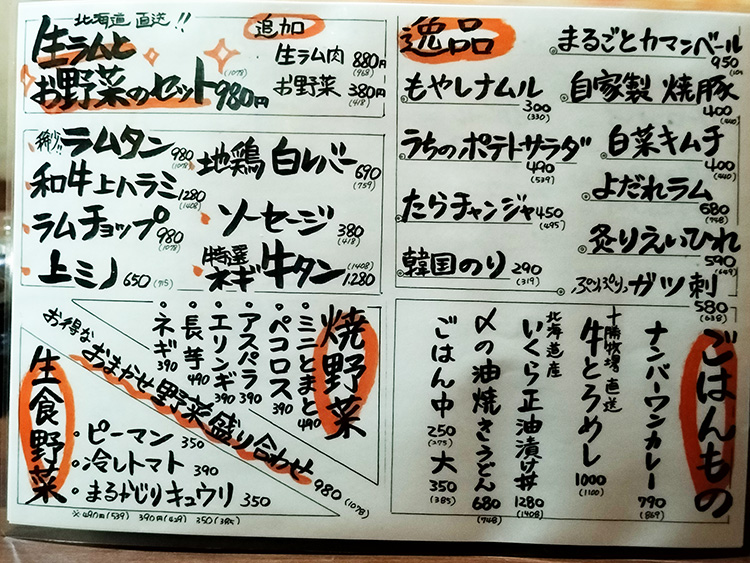 北海道直送!!
生ラムと
お野菜のセット 980円 (1078)
追加
生ラム肉 880円 (968)
お野菜 380円 (418)
稀少!! ラムタン 980 (1078)
和牛上ハラミ 1280 (1408)
ラムチョップ 980 (1078)
上ミノ 650 (715)
地鶏白レバー 690 (759)
ソーセージ 380 (418)
特選 ネギ牛タン 1280 (1408)
逸品
もやしナムル 300 (330)
うちのポテトサラダ 490 (539)
たらチャンジャ 450 (495)
韓国のり 290 (319)
まるごとカマンベール 950
自家製 焼豚 400 (440)
白菜キムチ 400 (440)
よだれラム 680 (748)
炙りえいひれ 590 (649)
ぷりぷりっガツ刺 580 (638)
焼野菜
・ミニとまと 490
・ペコロス 390
・アスパラ 390
・エリンギ 390
・長芋 490
・ネギ 390
お得な おまかせ野菜盛り合わせ 980 (1078)
生食野菜
・ピーマン 350
・冷しトマト 390
・まるかじりキュウリ 350
※490円(539) 390円(429) 350(385)
ごはんもの
ナンバーワンカレー 790 (869)
十勝牧場直送
牛とろめし 1000 (1100)
北海道産
いくら正油漬け丼 1280 (1408)
〆の油焼きうどん 680 (748)
ごはん中 250 (275) 大 350 (385)